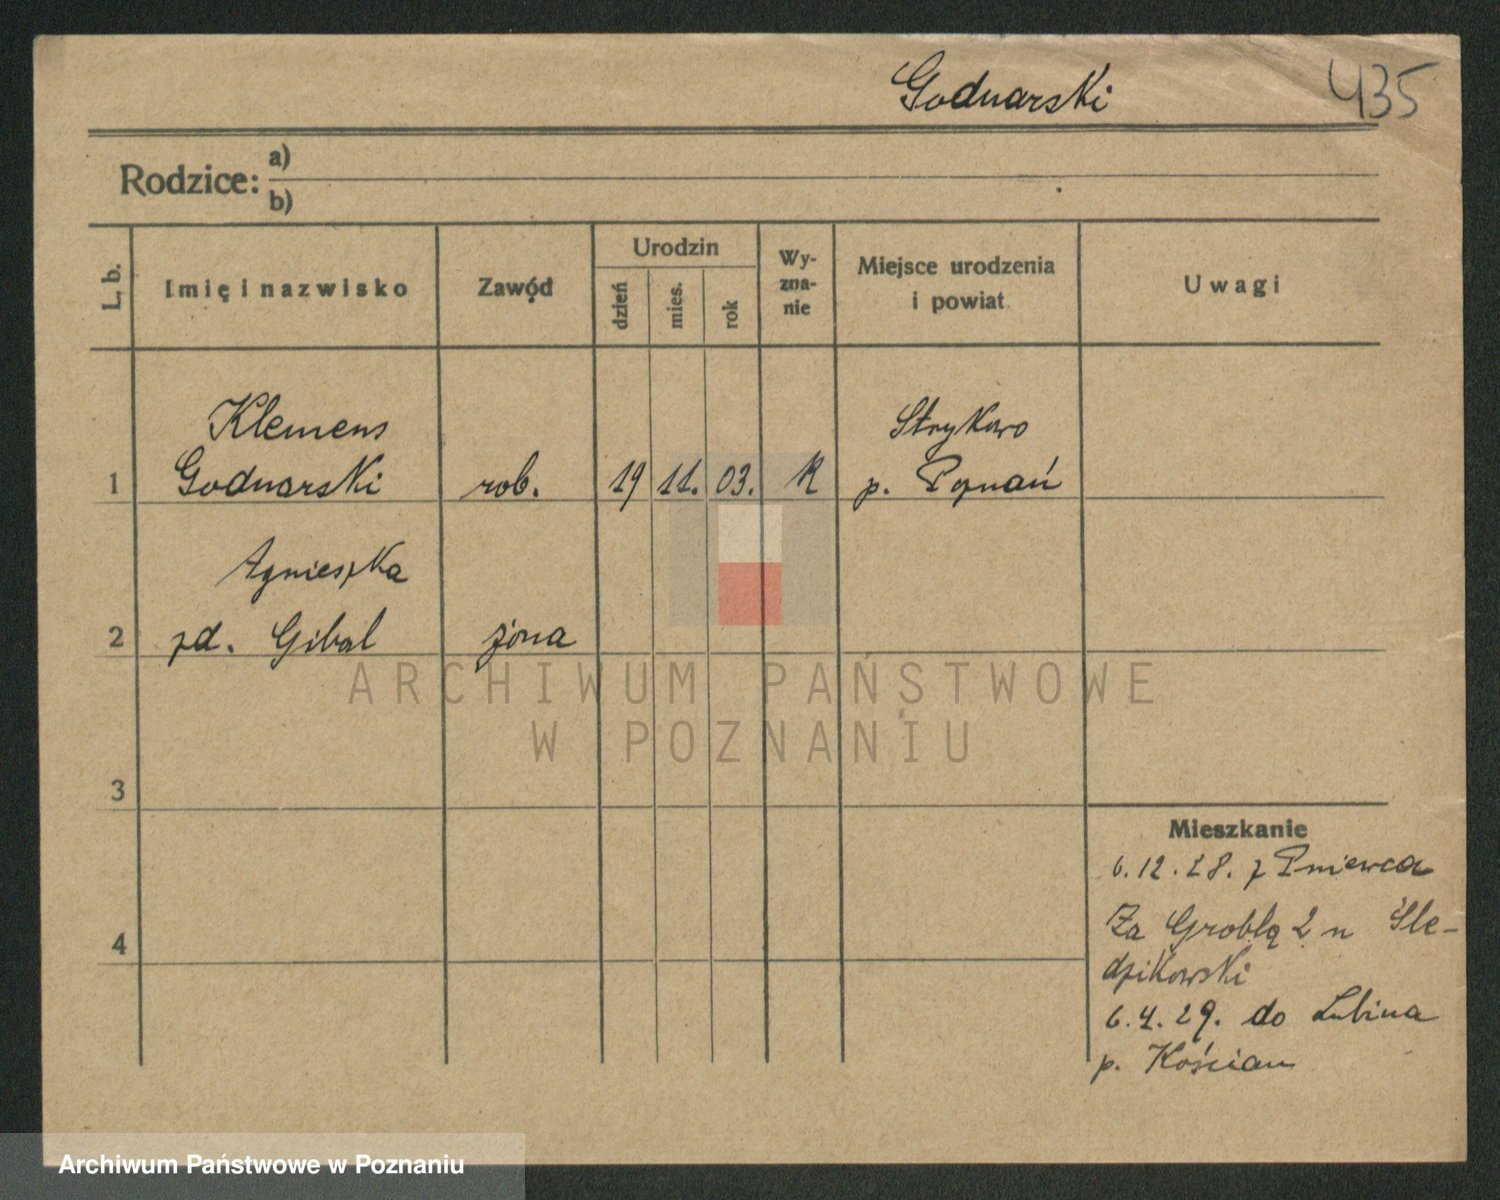 Godnarski
435
Rodzice: a)
b)
L. b.
Imię i nazwisko
Zawód
Urodzin
dzień
mies.
rok
Wy-
zna-
nie
Miejsce urodzenia
i powiat
Uwagi
Klemens
Strykowo
1 Godnarski rob. 19 11. 03. K p. Poznań
Agnieszka
2 zd. Gibal żona
ARCHIWUM PAŃSTWOWE
W POZNANIU
3
Mieszkanie
6.12.28. z Pniewca
Za Groblą 2 u Śle-
4
dzikowski
6.4.29. do Lubina
p. Kościan
Archiwum Państwowe w Poznaniu